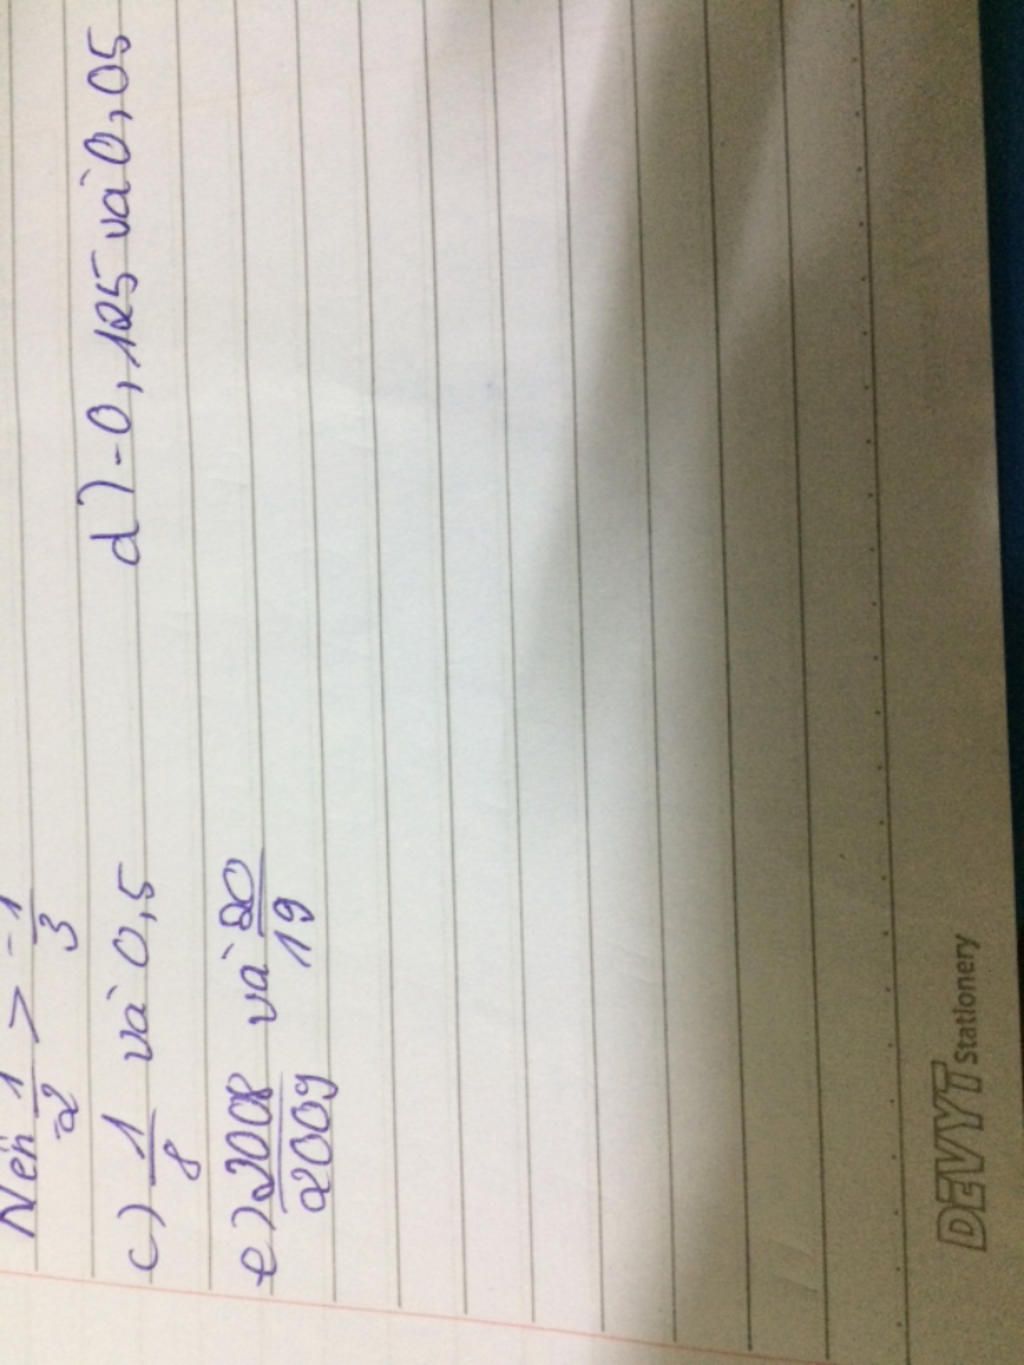 Nên 1/2 > -1/3
c) 1/8 và 0,5 d) -0,125 và 0,05
e) 2008/2009 và 20/19
DEVYT Stationery